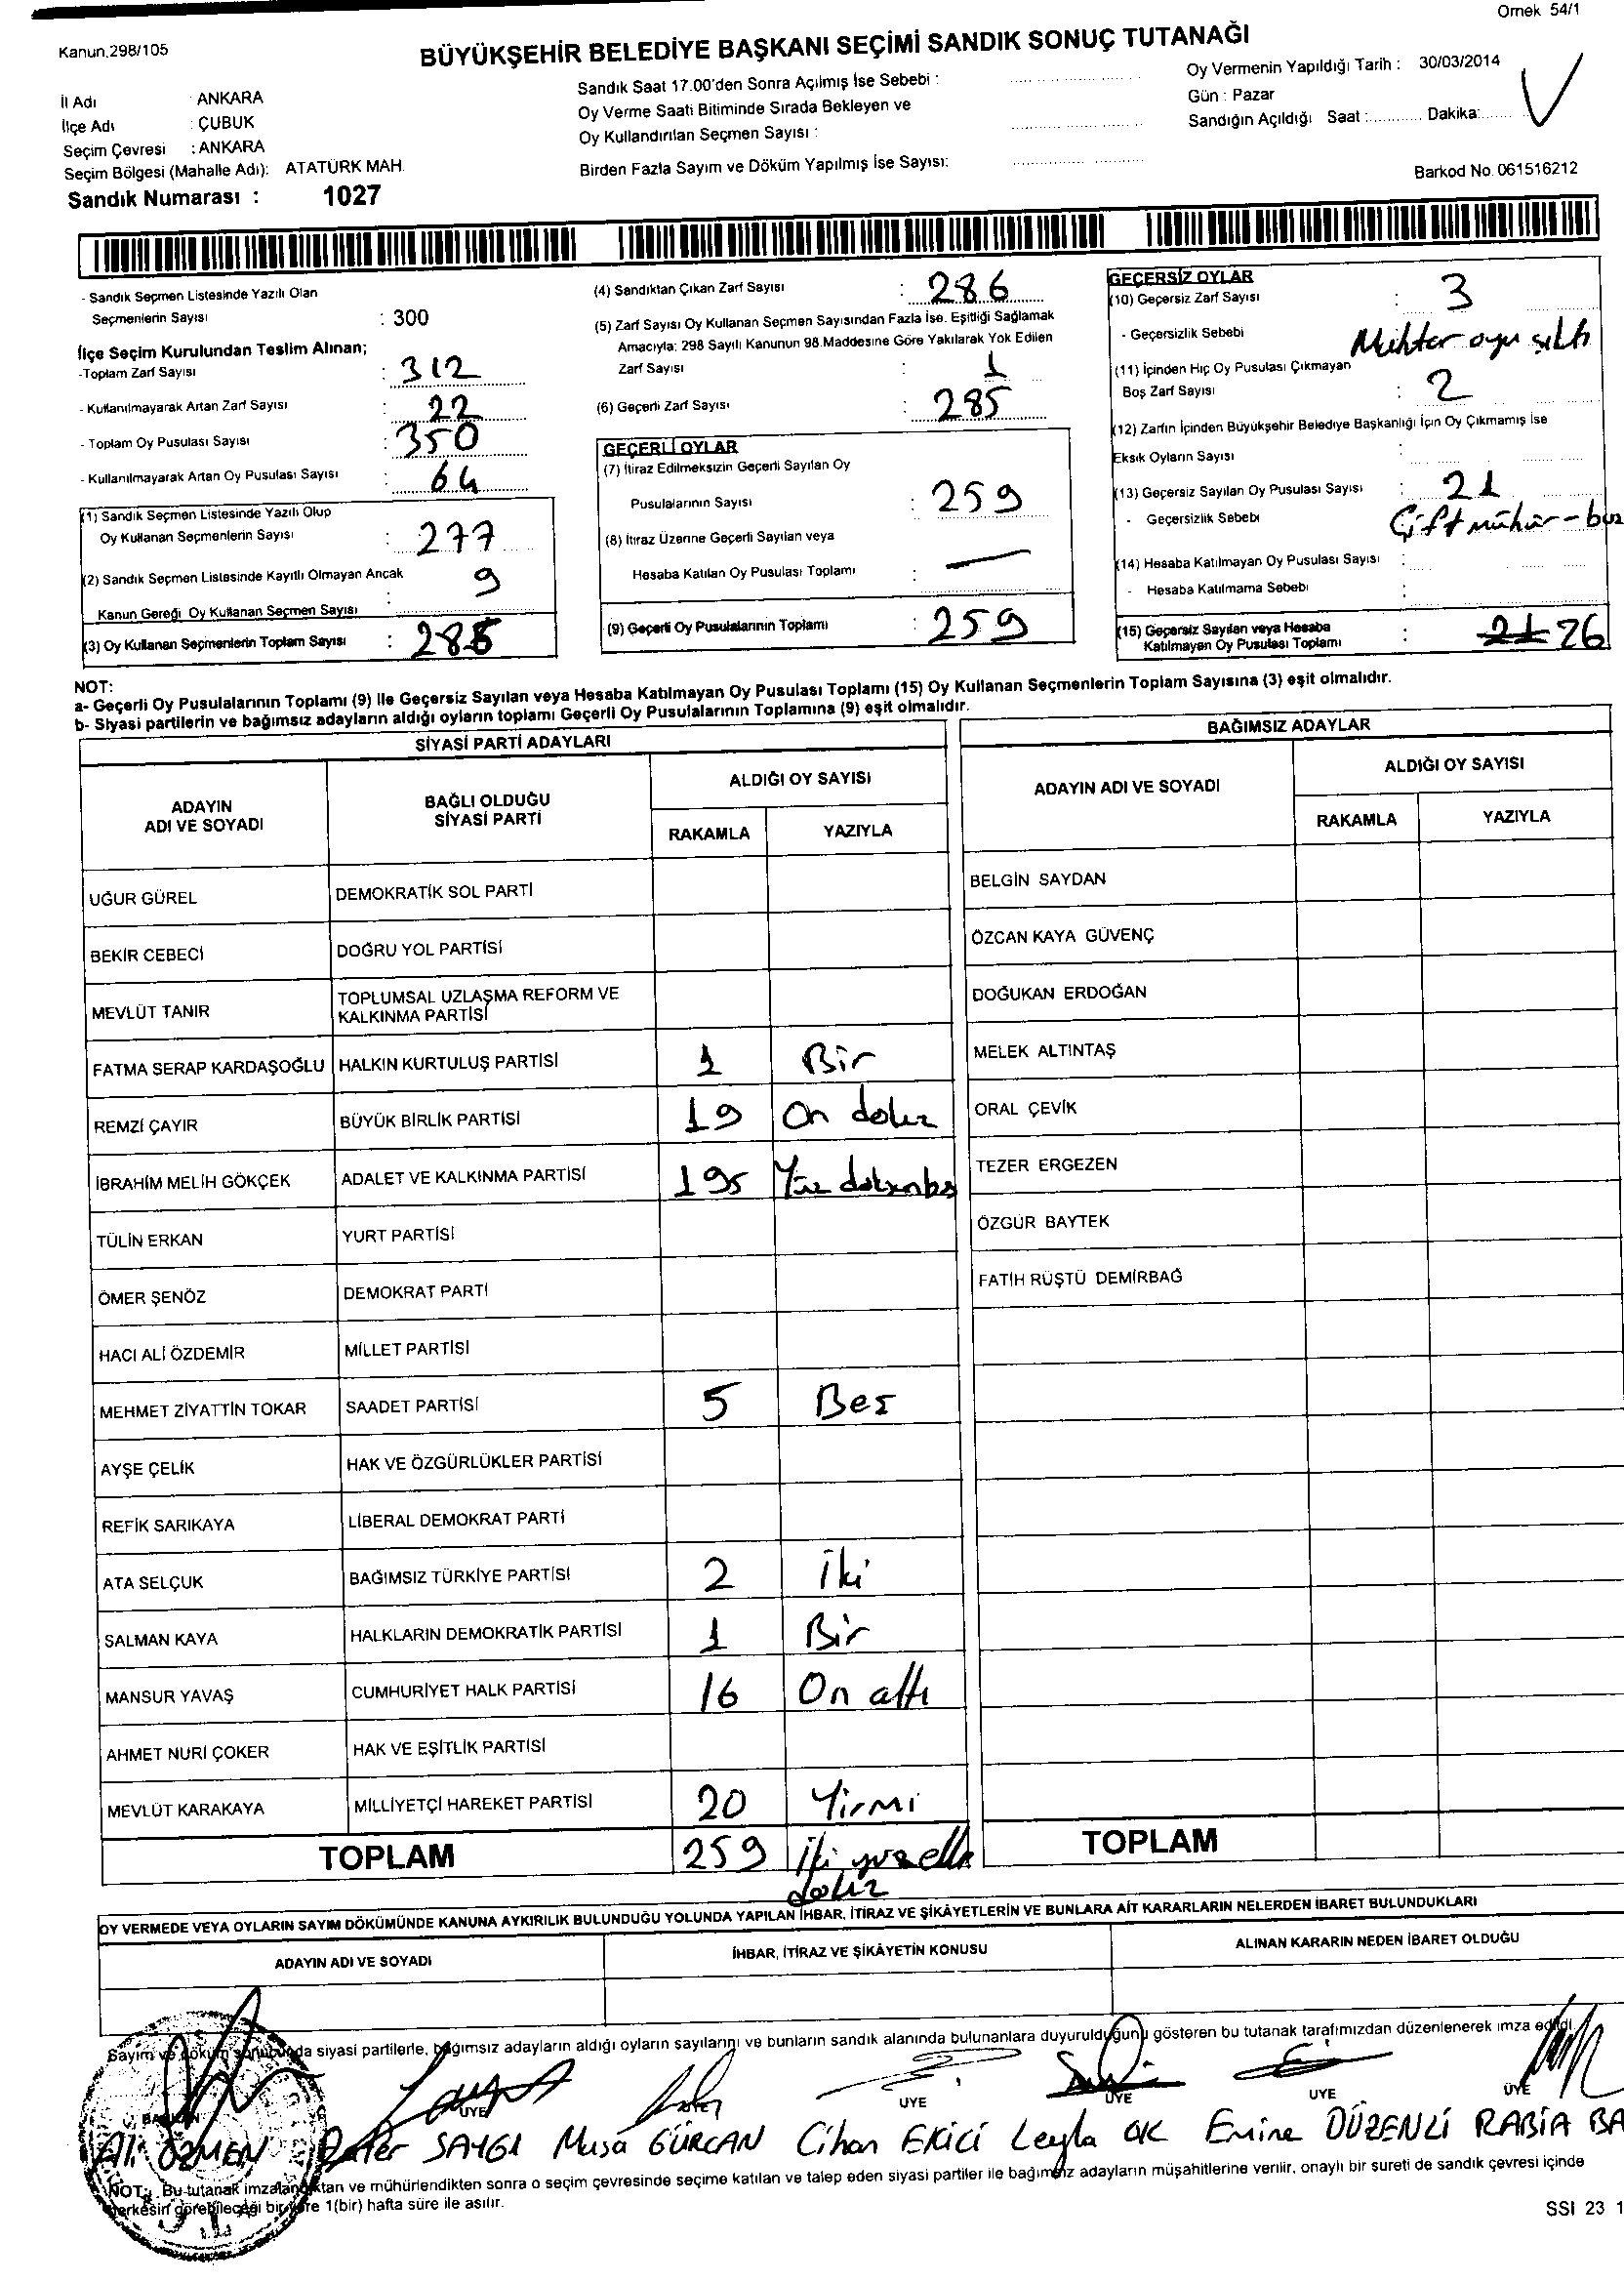 Örnek 54/1
Kanun.298/105
BÜYÜKŞEHİR BELEDİYE BAŞKANI SEÇİMİ SANDIK SONUÇ TUTANAĞI
İl Adı : ANKARA
İlçe Adı : ÇUBUK
Seçim Çevresi : ANKARA
Seçim Bölgesi (Mahalle Adı): ATATÜRK MAH.
Sandık Numarası : 1027
Sandık Saat 17.00'den Sonra Açılmış İse Sebebi :
Oy Verme Saati Bitiminde Sırada Bekleyen ve
Oy Kullandırılan Seçmen Sayısı :
Birden Fazla Sayım ve Döküm Yapılmış İse Sayısı:
Oy Vermenin Yapıldığı Tarih : 30/03/2014
Gün : Pazar
Sandığın Açıldığı Saat :............ Dakika:.......
Barkod No. 061516212
- Sandık Seçmen Listesinde Yazılı Olan
Seçmenlerin Sayısı : 300
İlçe Seçim Kurulundan Teslim Alınan;
-Toplam Zarf Sayısı : 312
- Kullanılmayarak Artan Zarf Sayısı : 22
- Toplam Oy Pusulası Sayısı : 350
- Kullanılmayarak Artan Oy Pusulası Sayısı : 64
(1) Sandık Seçmen Listesinde Yazılı Olup
Oy Kullanan Seçmenlerin Sayısı : 277
(2) Sandık Seçmen Listesinde Kayıtlı Olmayan Ancak
Kanun Gereği Oy Kullanan Seçmen Sayısı : 9
(3) Oy Kullanan Seçmenlerin Toplam Sayısı :
(4) Sandıktan Çıkan Zarf Sayısı : 286
(5) Zarf Sayısı Oy Kullanan Seçmen Sayısından Fazla İse. Eşitliği Sağlamak
Amacıyla: 298 Sayılı Kanunun 98.Maddesine Göre Yakılarak Yok Edilen
Zarf Sayısı : 1
(6) Geçerli Zarf Sayısı : 285
GEÇERLİ OYLAR
(7) İtiraz Edilmeksizin Geçerli Sayılan Oy
Pusulalarının Sayısı : 259
(8) İtiraz Üzerine Geçerli Sayılan veya
Hesaba Katılan Oy Pusulası Toplamı : —
(9) Geçerli Oy Pusulalarının Toplamı : 259
GEÇERSİZ OYLAR
(10) Geçersiz Zarf Sayısı : 3
- Geçersizlik Sebebi Muhtar oyu
(11) İçinden Hiç Oy Pusulası Çıkmayan
Boş Zarf Sayısı : 2
(12) Zarfın İçinden Büyükşehir Belediye Başkanlığı İçin Oy Çıkmamış İse
Eksik Oyların Sayısı :
(13) Geçersiz Sayılan Oy Pusulası Sayısı : 21
- Geçersizlik Sebebi Çift mühür -
(14) Hesaba Katılmayan Oy Pusulası Sayısı :
- Hesaba Katılmama Sebebi :
(15) Geçersiz Sayılan veya Hesaba
Katılmayan Oy Pusulası Toplamı : 21 26
NOT:
a- Geçerli Oy Pusulalarının Toplamı (9) İle Geçersiz Sayılan veya Hesaba Katılmayan Oy Pusulası Toplamı (15) Oy Kullanan Seçmenlerin Toplam Sayısına (3) eşit olmalıdır.
b- Siyasi partilerin ve bağımsız adayların aldığı oyların toplamı Geçerli Oy Pusulalarının Toplamına (9) eşit olmalıdır.
SİYASİ PARTİ ADAYLARI
ADAYIN ADI VE SOYADI BAĞLI OLDUĞU SİYASİ PARTİ ALDIĞI OY SAYISI
RAKAMLA YAZIYLA
UĞUR GÜREL DEMOKRATİK SOL PARTİ
BEKİR CEBECİ DOĞRU YOL PARTİSİ
MEVLÜT TANIR TOPLUMSAL UZLAŞMA REFORM VE KALKINMA PARTİSİ
FATMA SERAP KARDAŞOĞLU HALKIN KURTULUŞ PARTİSİ 1 Bir
REMZİ ÇAYIR BÜYÜK BİRLİK PARTİSİ 19 On dokuz
İBRAHİM MELİH GÖKÇEK ADALET VE KALKINMA PARTİSİ 195 Yüz doksanbeş
TÜLİN ERKAN YURT PARTİSİ
ÖMER ŞENÖZ DEMOKRAT PARTİ
HACI ALİ ÖZDEMİR MİLLET PARTİSİ
MEHMET ZİYATTİN TOKAR SAADET PARTİSİ 5 Beş
AYŞE ÇELİK HAK VE ÖZGÜRLÜKLER PARTİSİ
REFİK SARIKAYA LİBERAL DEMOKRAT PARTİ
ATA SELÇUK BAĞIMSIZ TÜRKİYE PARTİSİ 2 İki
SALMAN KAYA HALKLARIN DEMOKRATİK PARTİSİ 1 Bir
MANSUR YAVAŞ CUMHURİYET HALK PARTİSİ 16 On altı
AHMET NURİ ÇOKER HAK VE EŞİTLİK PARTİSİ
MEVLÜT KARAKAYA MİLLİYETÇİ HAREKET PARTİSİ 20 Yirmi
TOPLAM 259 İki yüz elli dokuz
BAĞIMSIZ ADAYLAR
ADAYIN ADI VE SOYADI ALDIĞI OY SAYISI
RAKAMLA YAZIYLA
BELGİN SAYDAN
ÖZCAN KAYA GÜVENÇ
DOĞUKAN ERDOĞAN
MELEK ALTINTAŞ
ORAL ÇEVİK
TEZER ERGEZEN
ÖZGÜR BAYTEK
FATİH RÜŞTÜ DEMİRBAĞ
TOPLAM
OY VERMEDE VEYA OYLARIN SAYIM DÖKÜMÜNDE KANUNA AYKIRILIK BULUNDUĞU YOLUNDA YAPILAN İHBAR, İTİRAZ VE ŞİKÂYETLERİN VE BUNLARA AİT KARARLARIN NELERDEN İBARET BULUNDUKLARI
ADAYIN ADI VE SOYADI İHBAR, İTİRAZ VE ŞİKÂYETİN KONUSU ALINAN KARARIN NEDEN İBARET OLDUĞU
Sayım ve döküm sonucunda siyasi partilerle, bağımsız adayların aldığı oyların sayılarını ve bunların sandık alanında bulunanlara duyurulduğunu gösteren bu tutanak tarafımızdan düzenlenerek imza edildi.
BAŞKAN ÜYE ÜYE ÜYE ÜYE ÜYE ÜYE
Ali ÖZMEN SAYGI Musa GÜRCAN Cihan EKİCİ Leyla OK Emine DÜZENLİ RABİA BA
NOT: Bu tutanak imzalandıktan ve mühürlendikten sonra o seçim çevresinde seçime katılan ve talep eden siyasi partiler ile bağımsız adayların müşahitlerine verilir, onaylı bir sureti de sandık çevresi içinde
herkesin görebileceği bir yere 1(bir) hafta süre ile asılır.
SSI 23 1